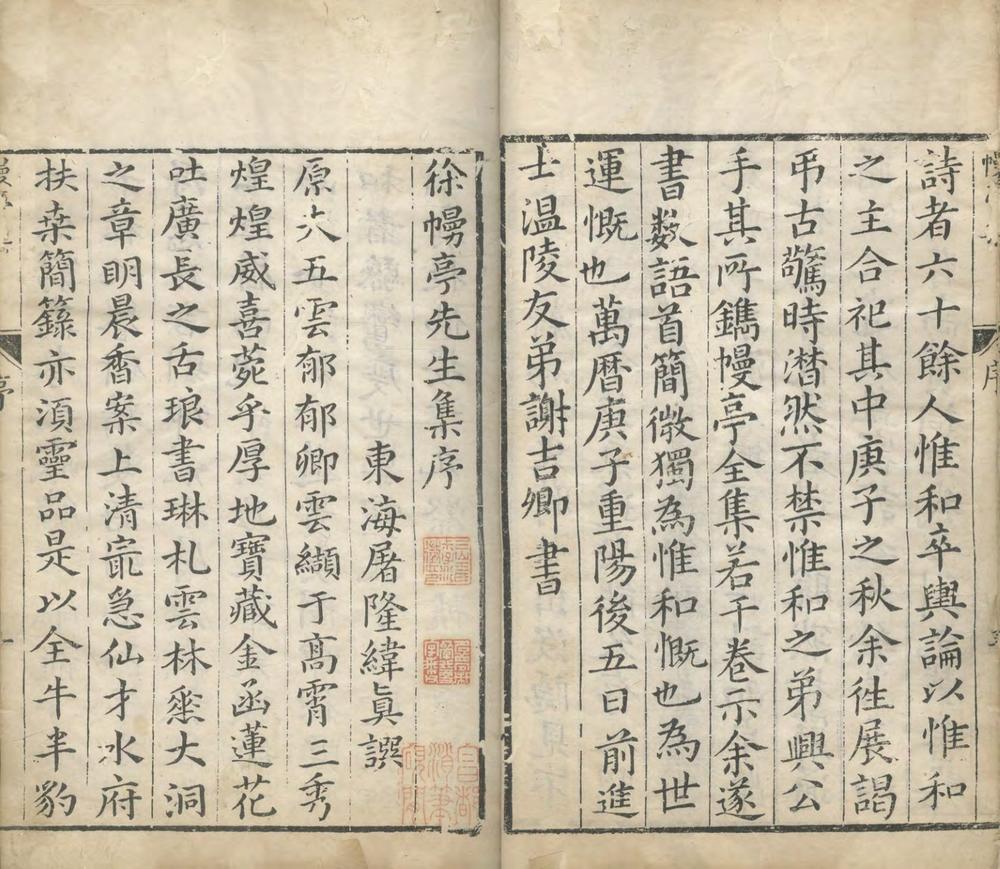 詩者六十餘人惟和卒輿論以惟和
之主合祀其中庚子之秋余徃展謁
弔古驚時潸然不禁惟和之弟興公
手其所鐫幔亭全集若干卷示余遂
書数語首簡微獨為惟和慨也為世
運慨也萬曆庚子重陽後五日前進
士温陵友弟謝吉卿書
徐幔亭先生集序
東海屠隆緯眞譔
原夫五雲郁郁卿雲纈于髙霄三秀
煌煌威喜薨乎厚地寶藏金函蓮花
吐廣長之舌琅書琳札雲林焘大洞
之章明晨香案上清窕急仙才水府
扶桒簡籙亦湏靈品是以全牛半豹